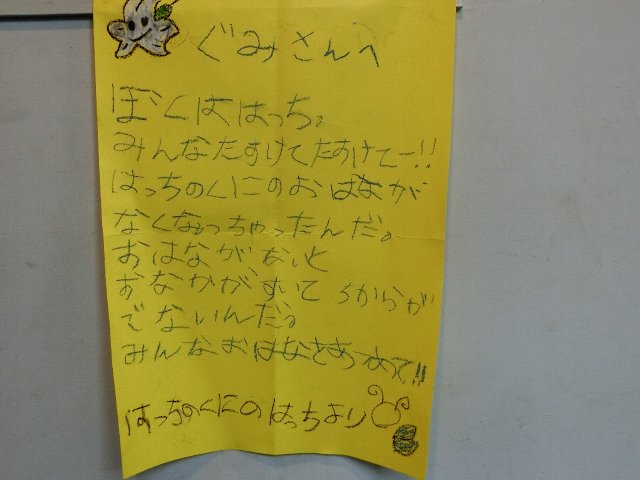 ぐみさんへ
ぼくははっち。
みんなたすけてたすけてー!!
はっちのくにのおはなが
なくなっちゃったんだ。
おはながないと
おなかがすいてちからが
でないんだ。
みんなおはなをあつめて!!
はっちのくにのはっちより